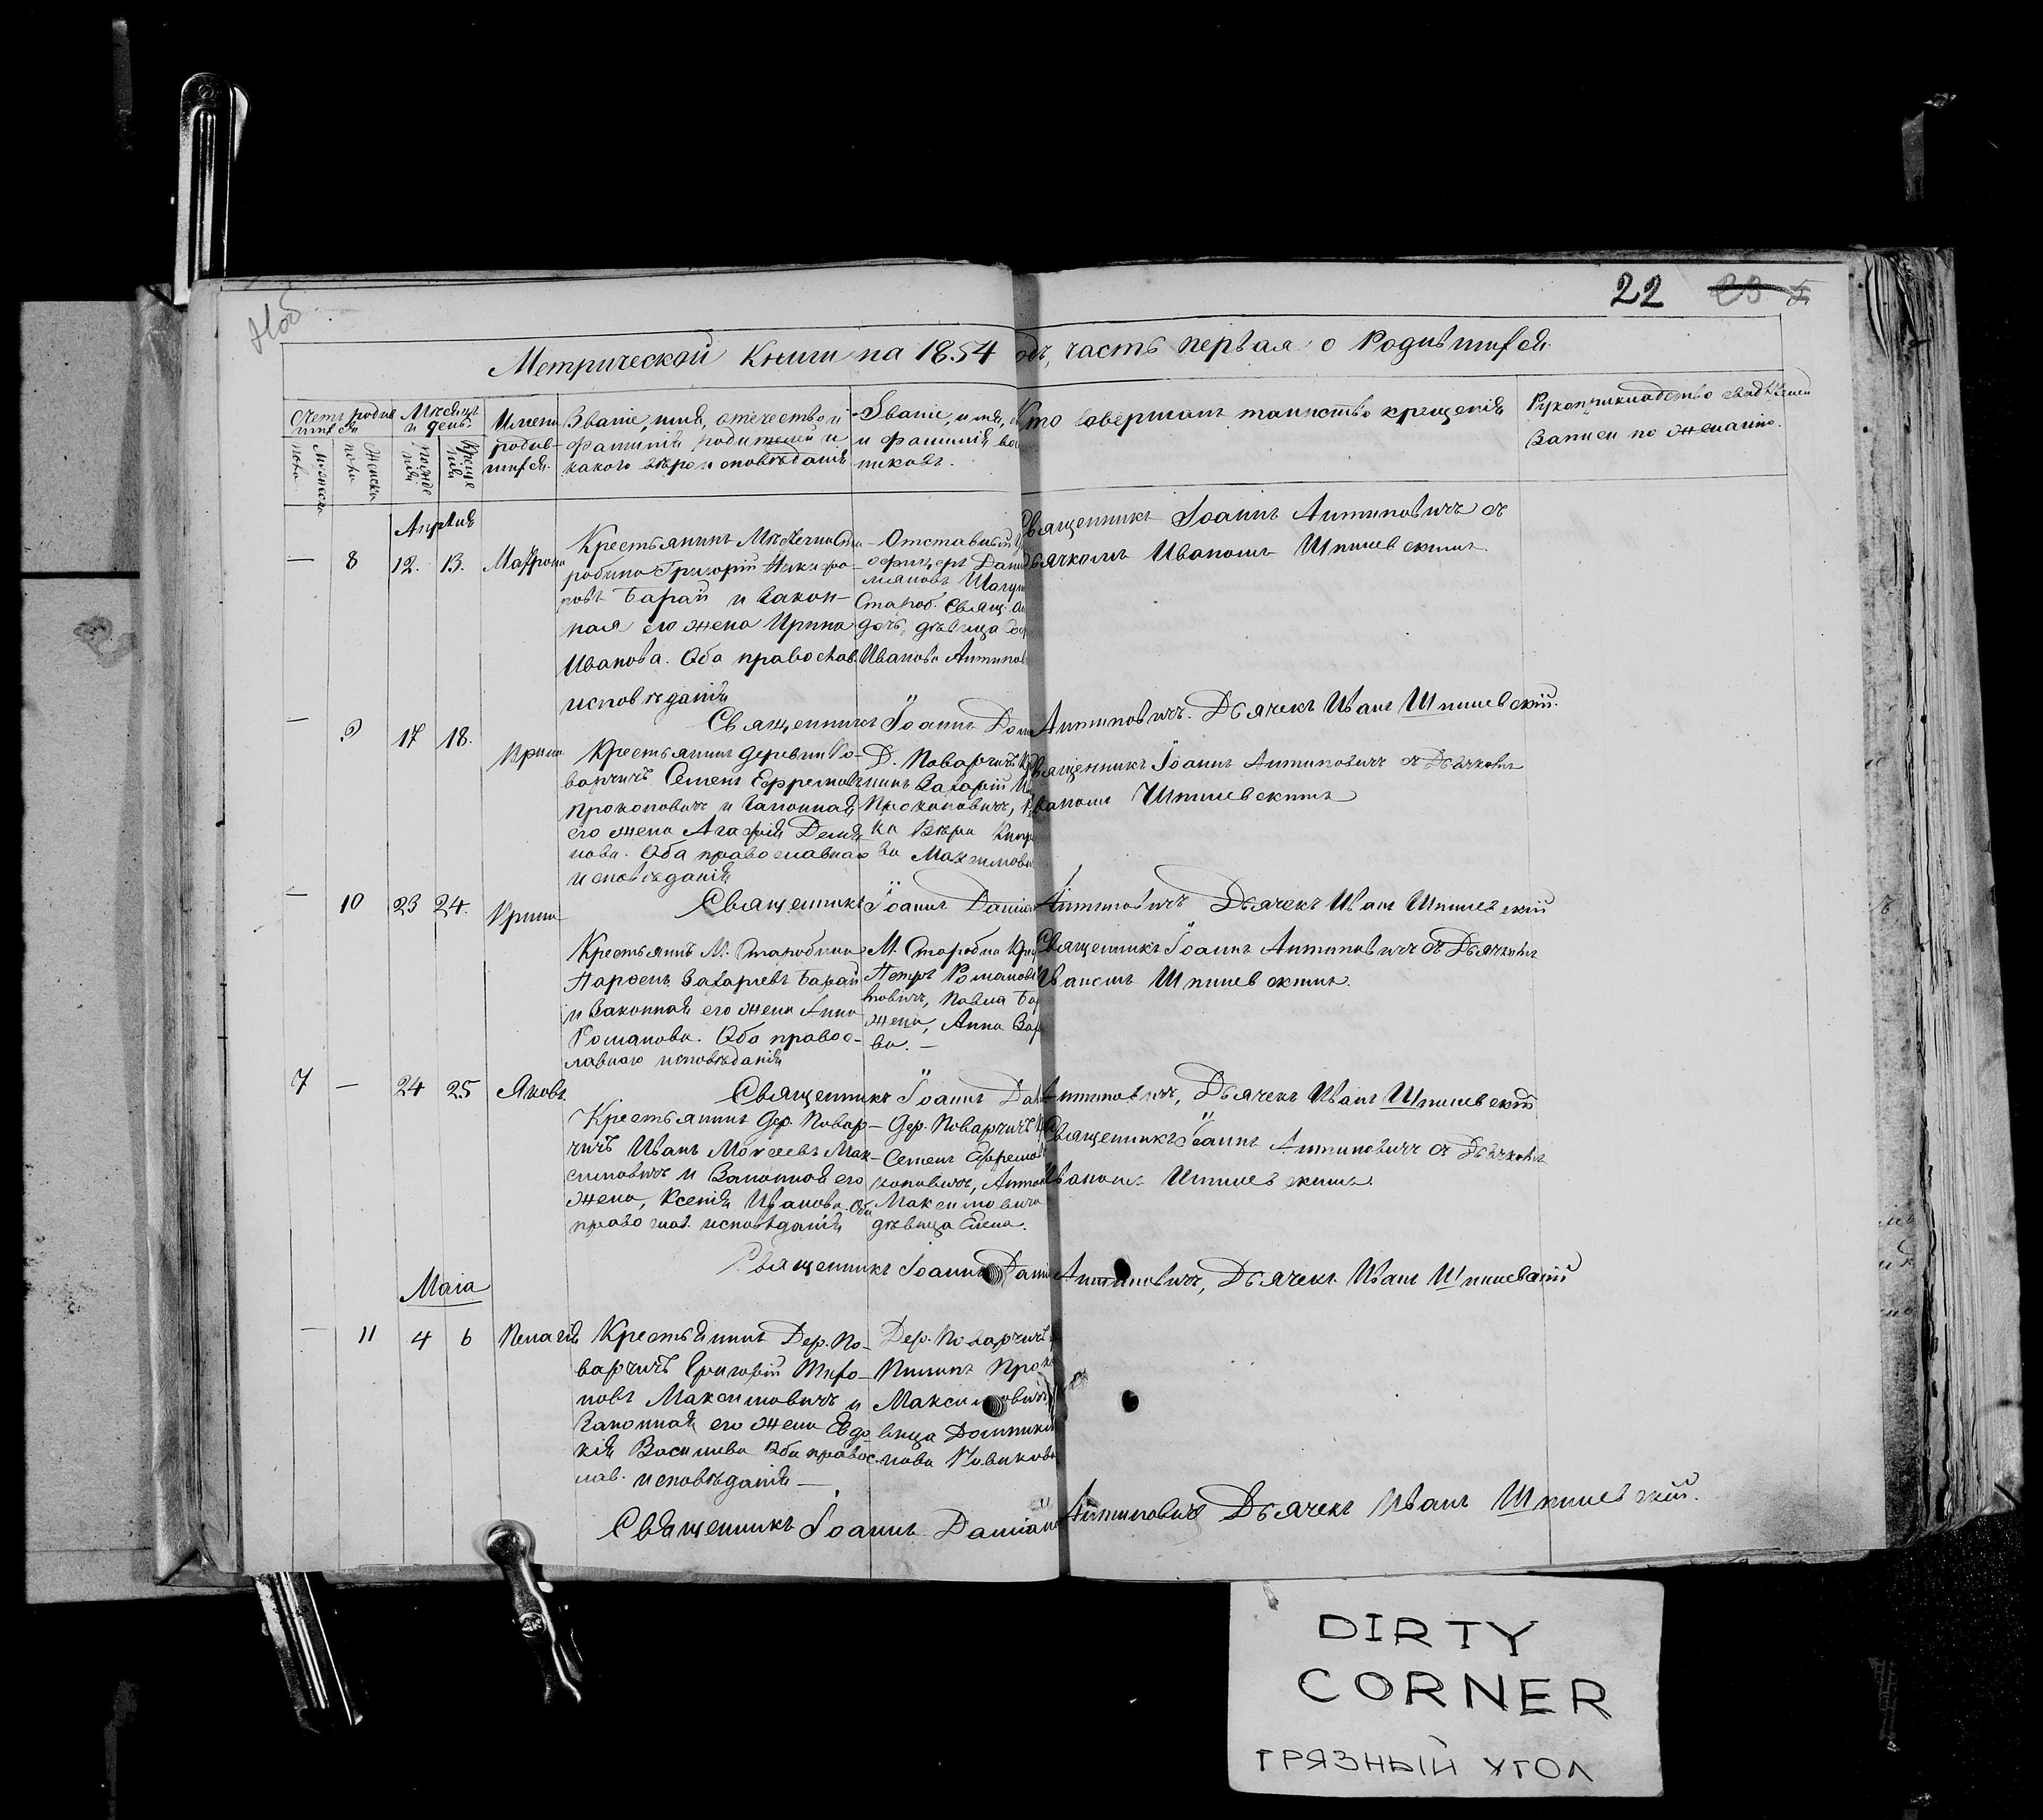 22
Метрической Книги на 1854 одъ, часть первая о Родившихся.
Счетъ родив
шихся
Мужеска
пола
Женска
пола
Мѣсяцъ
и день.
рожде
нія
креще
нія
Имена
родив-
шихся.
Званіе, имя, отечество и
фамилія родителей и
какого вѣроисповѣданія
Званіе, имя,
и фамилія во
никовъ.
Кто совершалъ таинство крещенія
Рукоприкладство свидѣтелей
записи по желанію.
Апрѣля
— 8 12. 13. Матрона
Крестьянинъ Мѣстечка Ста
робина Григорій Никифо-
ровъ Барай и закон-
ная его жена Ирина
Иванова. Оба православ.
исповѣданія
Отставный
офицеръ Дами
мяновъ
Староб. Свящ.
дочь, дѣвица
Иванова Антипов
Священникъ Іоаннъ Антиповичъ съ
дьячкомъ Иваномъ Шпилевскимъ.
Священникъ Іоаннъ Дами Антиповичъ. Дьячекъ Иванъ Шпилевскій.
— 9 17 18. Ирина
Крестьянинъ деревни По-
варчичъ Семенъ Ефремовъ
Прокоповичъ и законная
его жена Агафія Демья
нова. Оба православнаго
исповѣданія
Д. Поварчичъ Кр
нинъ Захарій
Прокоповичъ,
ка Вѣра
ва Максимови
Священникъ Іоаннъ Антиповичъ съ Дьячкомъ
Иваномъ Шпилевскимъ
Священникъ Іоаннъ Даміан Антиповичъ Дьячекъ Иванъ Шпилевскій
— 10 23 24. Ирина
Крестьянинъ М. Старобина
Парѳенъ Захарьевъ Барай
и законная его жена Анна
Романова. Оба правос-
лавнаго исповѣданія
М. Старобина Кре
Петръ Романовъ
повичъ, Павла Ба
жена, Анна Зах
ва. —
Священникъ Іоаннъ Антиповичъ съ Дьячкомъ
Иваномъ Шпилевскимъ.
Священникъ Іоаннъ Дам Антиповичъ, Дьячекъ Иванъ Шпилевскій
7 — 24 25 Яковъ
Крестьянинъ дер. Повар-
чичъ Иванъ Моисеевъ Мак-
симовичъ и законная его
жена, Ксенія Иванова. Оба
православ. исповѣданія
Дер. Поварчичъ
Семенъ Ефремо
коповичъ, Антон
Максимовича
дѣвица Елена.
Священникъ Іоаннъ Антиповичъ съ Дьячкомъ
Иваномъ Шпилевскимъ
Священникъ Іоаннъ Дамі Антиповичъ, Дьячекъ Иванъ Шпилевскій
Маія
— 11 4 6 Пелагія
Крестьянинъ Дер. По-
варчичъ Григорій
новъ Максимовичъ и
законная его жена Евдо
кія Васильева Оба правос
лав. исповѣданія —
Дер. Поварчичъ
Пилипъ Прок
Максимовичъ,
вица Домники
нова Новикова
Священникъ Іоаннъ Даміано Антиповичъ Дьячекъ Иванъ Шпилевскій.
DIRTY
CORNER
ГРЯЗНЫЙ УГОЛ